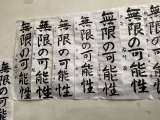 無限の可能性
無限の可能性
無限の可能性
無限の可能性
無限の可能性
無限の可能性